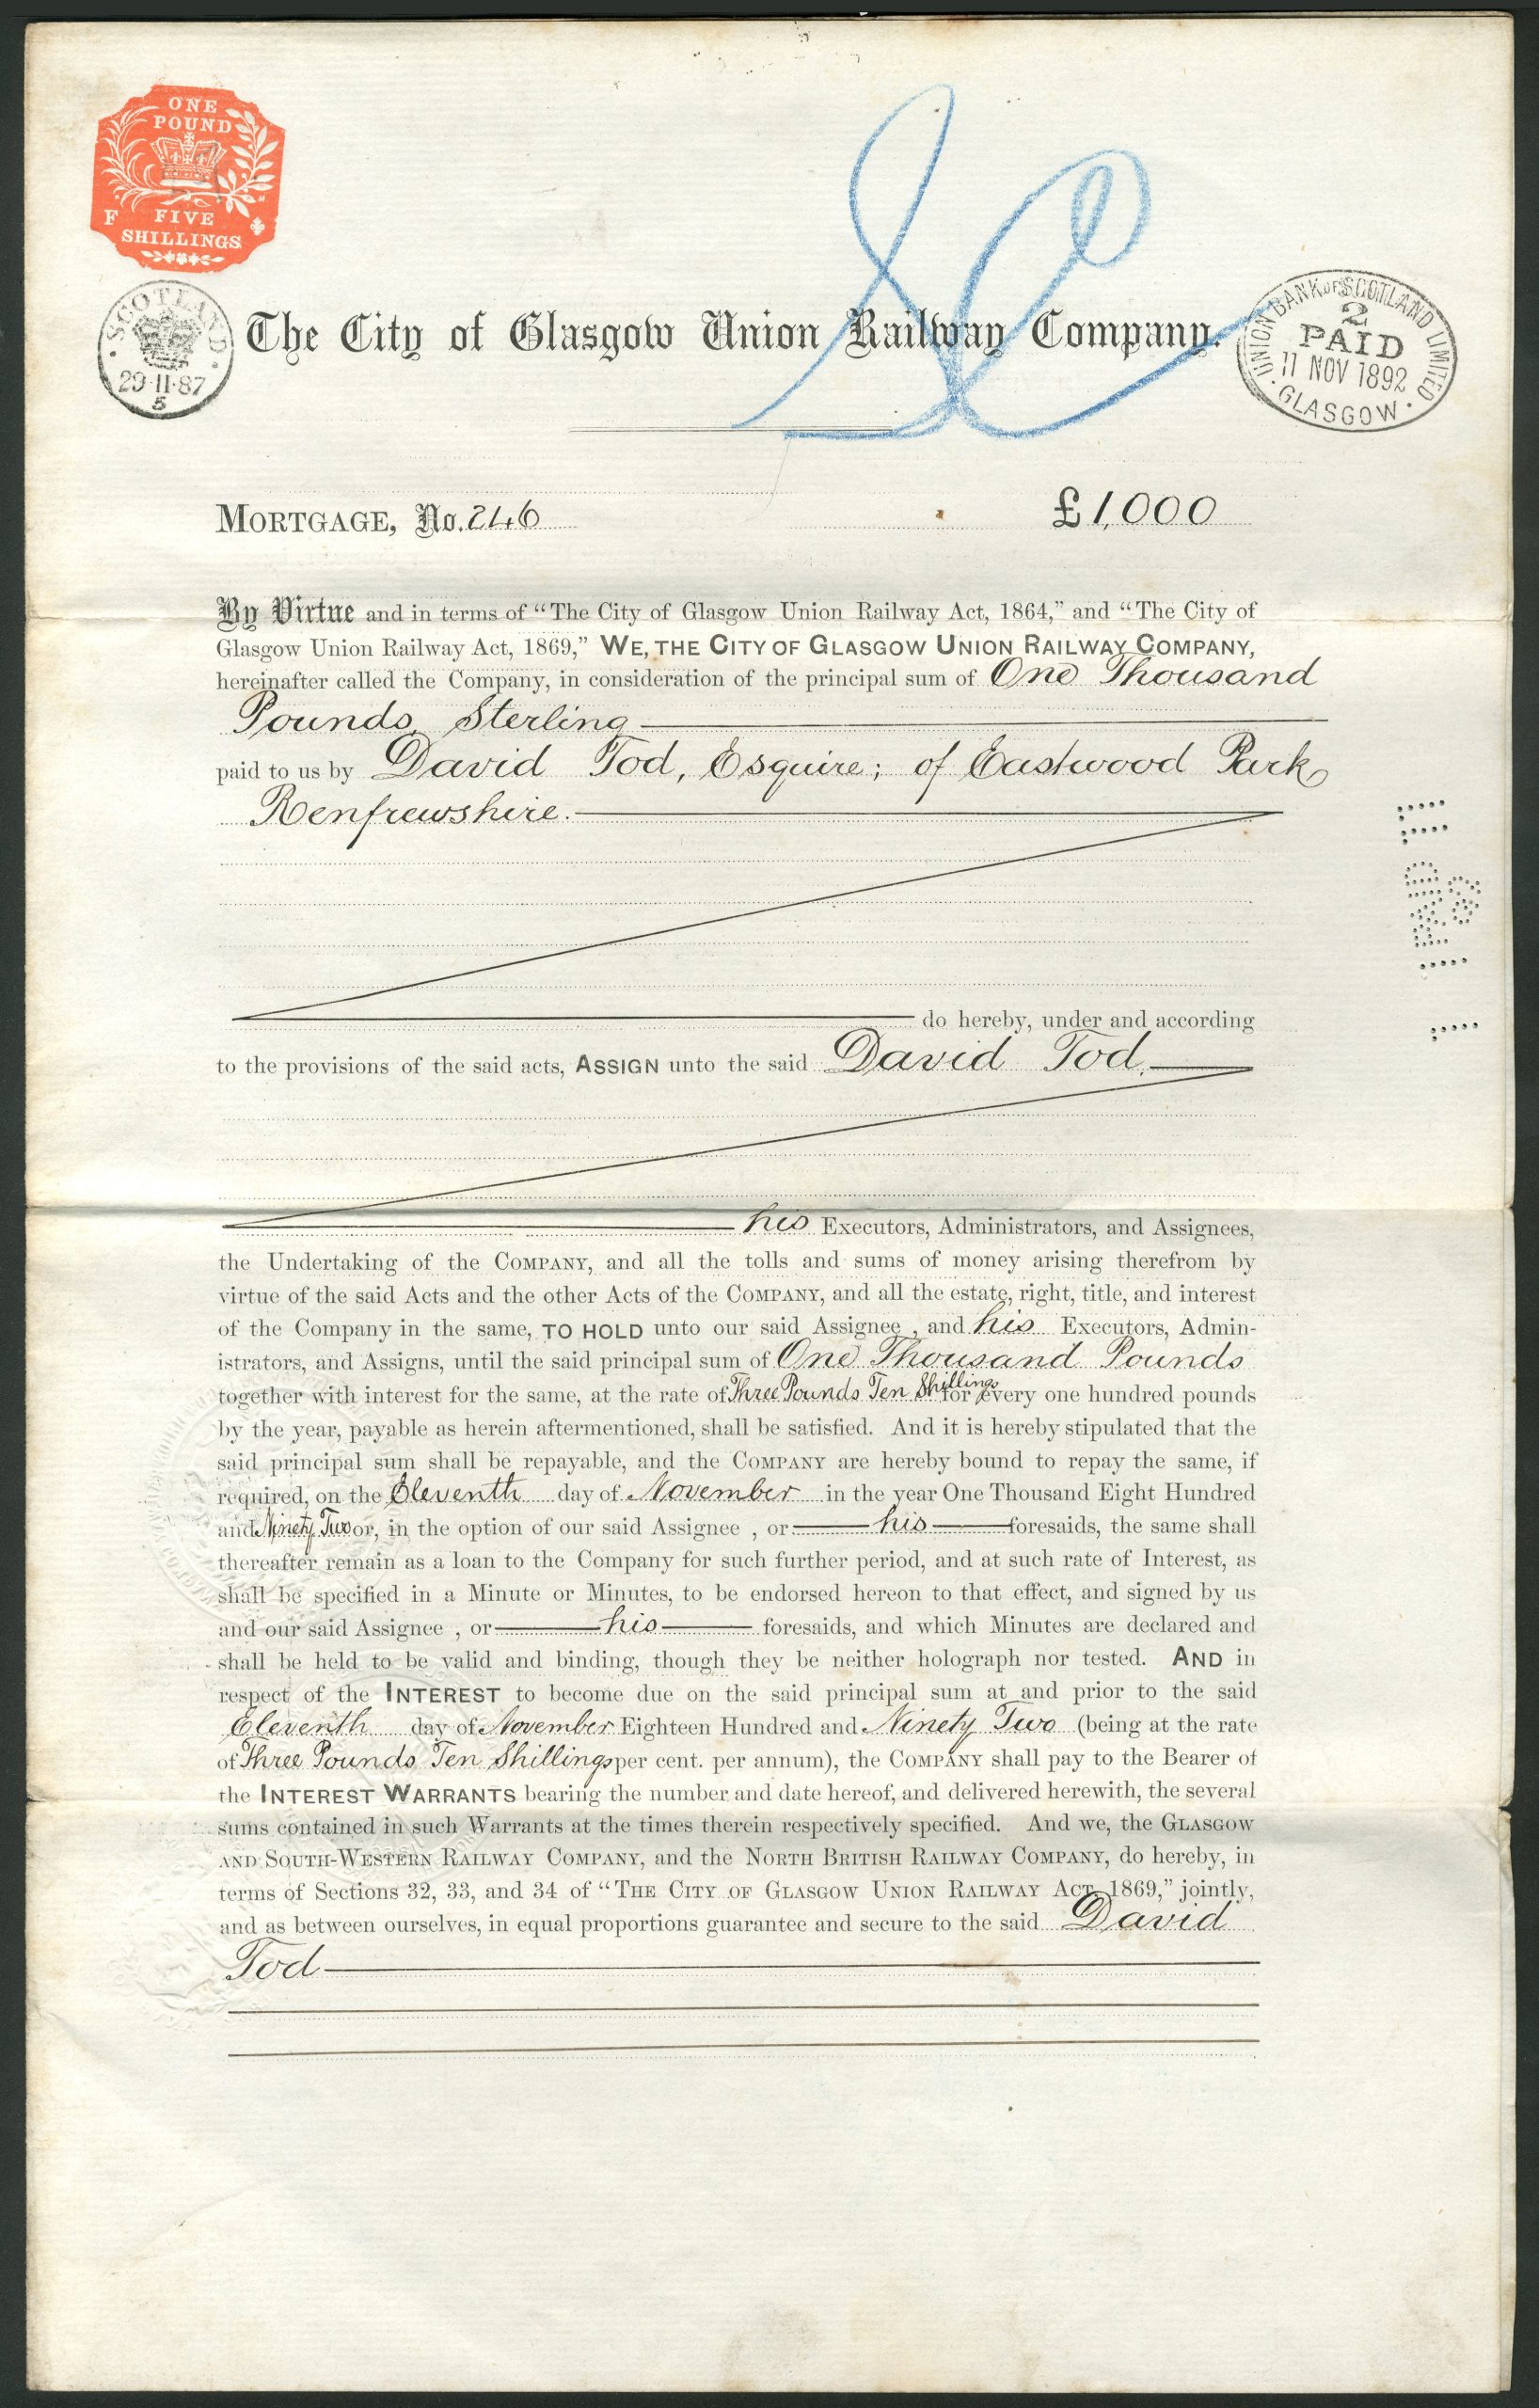 ONE
POUND
F FIVE
SHILLINGS
SCOTLAND
29·11·87
5
The City of Glasgow Union Railway Company.
UNION BANK OF SCOTLAND LIMITED
2
PAID
11 NOV 1892
GLASGOW
MORTGAGE, No. 246 £1,000
By Virtue and in terms of “The City of Glasgow Union Railway Act, 1864,” and “The City of
Glasgow Union Railway Act, 1869,” WE, THE CITY OF GLASGOW UNION RAILWAY COMPANY,
hereinafter called the Company, in consideration of the principal sum of One Thousand
Pounds Sterling
paid to us by David Tod, Esquire; of Eastwood Park,
Renfrewshire.
do hereby, under and according
to the provisions of the said acts, ASSIGN unto the said David Tod,
his Executors, Administrators, and Assignees,
the Undertaking of the COMPANY, and all the tolls and sums of money arising therefrom by
virtue of the said Acts and the other Acts of the COMPANY, and all the estate, right, title, and interest
of the Company in the same, TO HOLD unto our said Assignee , and his Executors, Admin-
istrators, and Assigns, until the said principal sum of One Thousand Pounds
together with interest for the same, at the rate of Three Pounds Ten Shillings for every one hundred pounds
by the year, payable as herein aftermentioned, shall be satisfied. And it is hereby stipulated that the
said principal sum shall be repayable, and the COMPANY are hereby bound to repay the same, if
required, on the Eleventh day of November in the year One Thousand Eight Hundred
and Ninety Two or, in the option of our said Assignee , or his foresaids, the same shall
thereafter remain as a loan to the Company for such further period, and at such rate of Interest, as
shall be specified in a Minute or Minutes, to be endorsed hereon to that effect, and signed by us
and our said Assignee , or his foresaids, and which Minutes are declared and
shall be held to be valid and binding, though they be neither holograph nor tested. AND in
respect of the INTEREST to become due on the said principal sum at and prior to the said
Eleventh day of November Eighteen Hundred and Ninety Two (being at the rate
of Three Pounds Ten Shillings per cent. per annum), the COMPANY shall pay to the Bearer of
the INTEREST WARRANTS bearing the number and date hereof, and delivered herewith, the several
sums contained in such Warrants at the times therein respectively specified. And we, the GLASGOW
AND SOUTH-WESTERN RAILWAY COMPANY, and the NORTH BRITISH RAILWAY COMPANY, do hereby, in
terms of Sections 32, 33, and 34 of “THE CITY OF GLASGOW UNION RAILWAY ACT, 1869,” jointly,
and as between ourselves, in equal proportions guarantee and secure to the said David
Tod